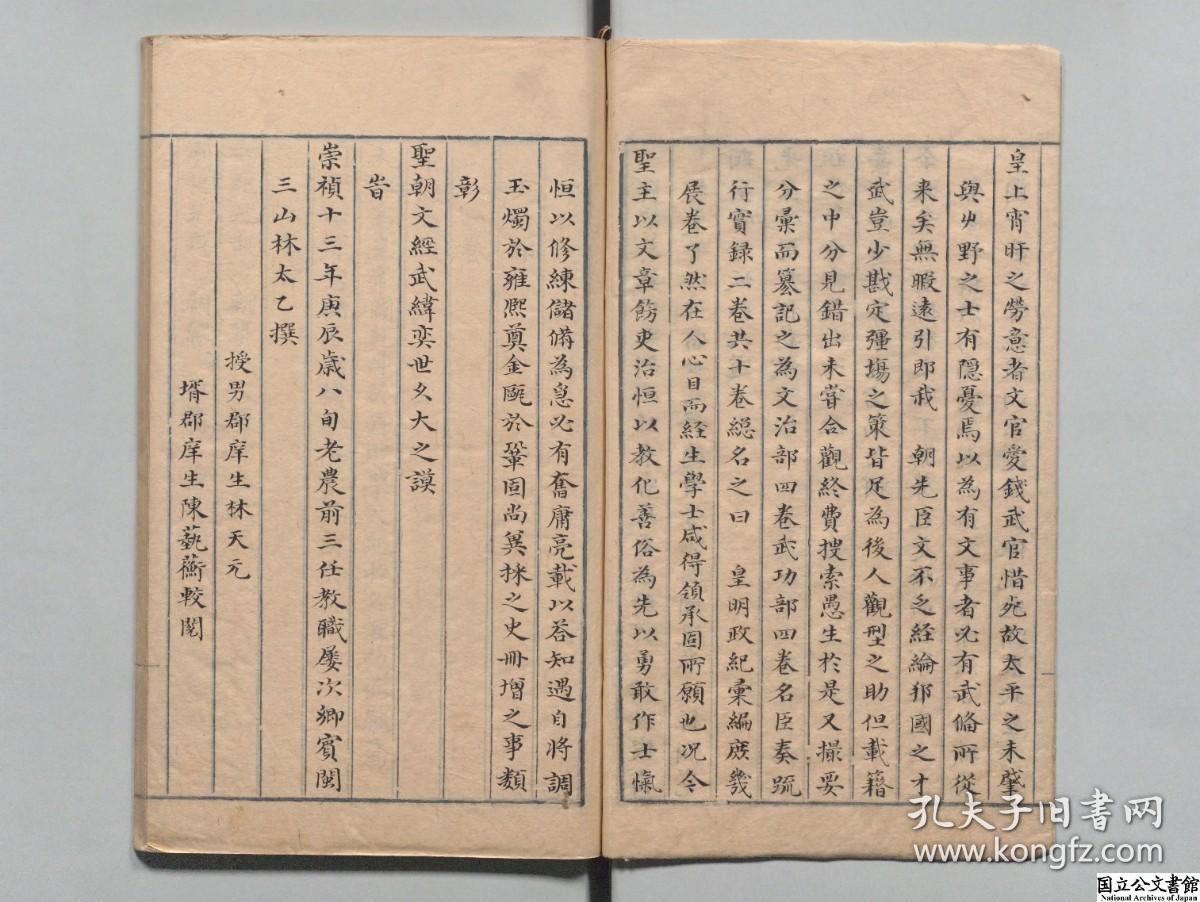 皇上宵旰之勞意者文官愛錢武官惜死故太平之未肇
與艸野之士有隱憂焉以為有文事者必有武備所從
来矣無暇遠引即我 朝先臣文不乏経綸邦國之才
武豈少戡定彊塲之策皆足為後人觀型之助但載籍
之中分見錯出未甞合觀終費搜索愚生於是又撮要
分彚而纂記之為文治部四卷武功部四卷名臣奏䟽
行實録二卷共十卷緫名之曰 皇明政紀彚編庻幾
展卷了然在人心目而経生學士咸得領承固所願也况今
聖主以文章飭吏治恒以教化善俗為先以勇敢作士愾
恒以修練儲備為急必有奮庸亮載以荅知遇自將調
玉燭於雍熈奠金甌於鞏固尚兾採之史冊增之事類
彰
聖朝文經武緯奕世久大之謨
旹
崇禎十三年庚辰歲八旬老農前三任教職屡次鄉賓閩
三山林太乙撰
授男郡庠生林天元
壻郡庠生陳蓺蘅較閲
孔夫子旧书网
www.kongfz.com
国立公文書館
National Archives of Japan